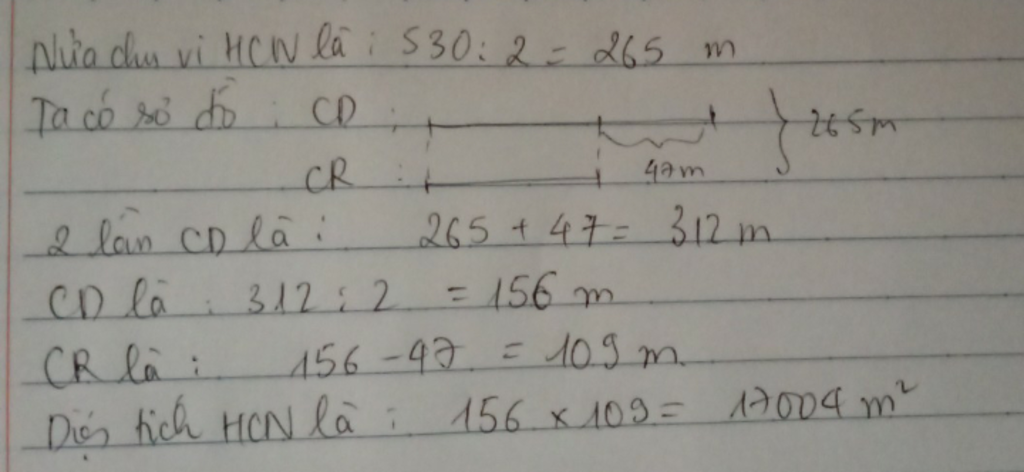 Nửa chu vi HCN là : 530 : 2 = 265 m
Ta có sơ đồ : CD : 265m
CR : 47m
2 lần CD là : 265 + 47 = 312 m
CD là : 312 : 2 = 156 m
CR là : 156 - 47 = 109 m
Diện tích HCN là : 156 x 109 = 17004 m²